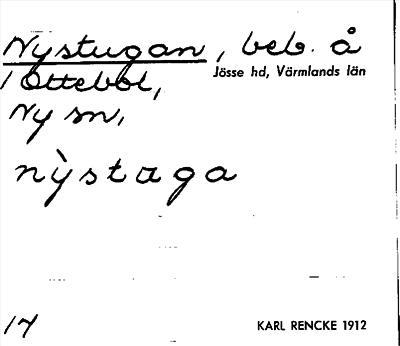 Nystugan, beb. å
Ottebol, Jösse hd, Värmlands län
Ny sn,
nỳstaga
KARL RENCKE 1912